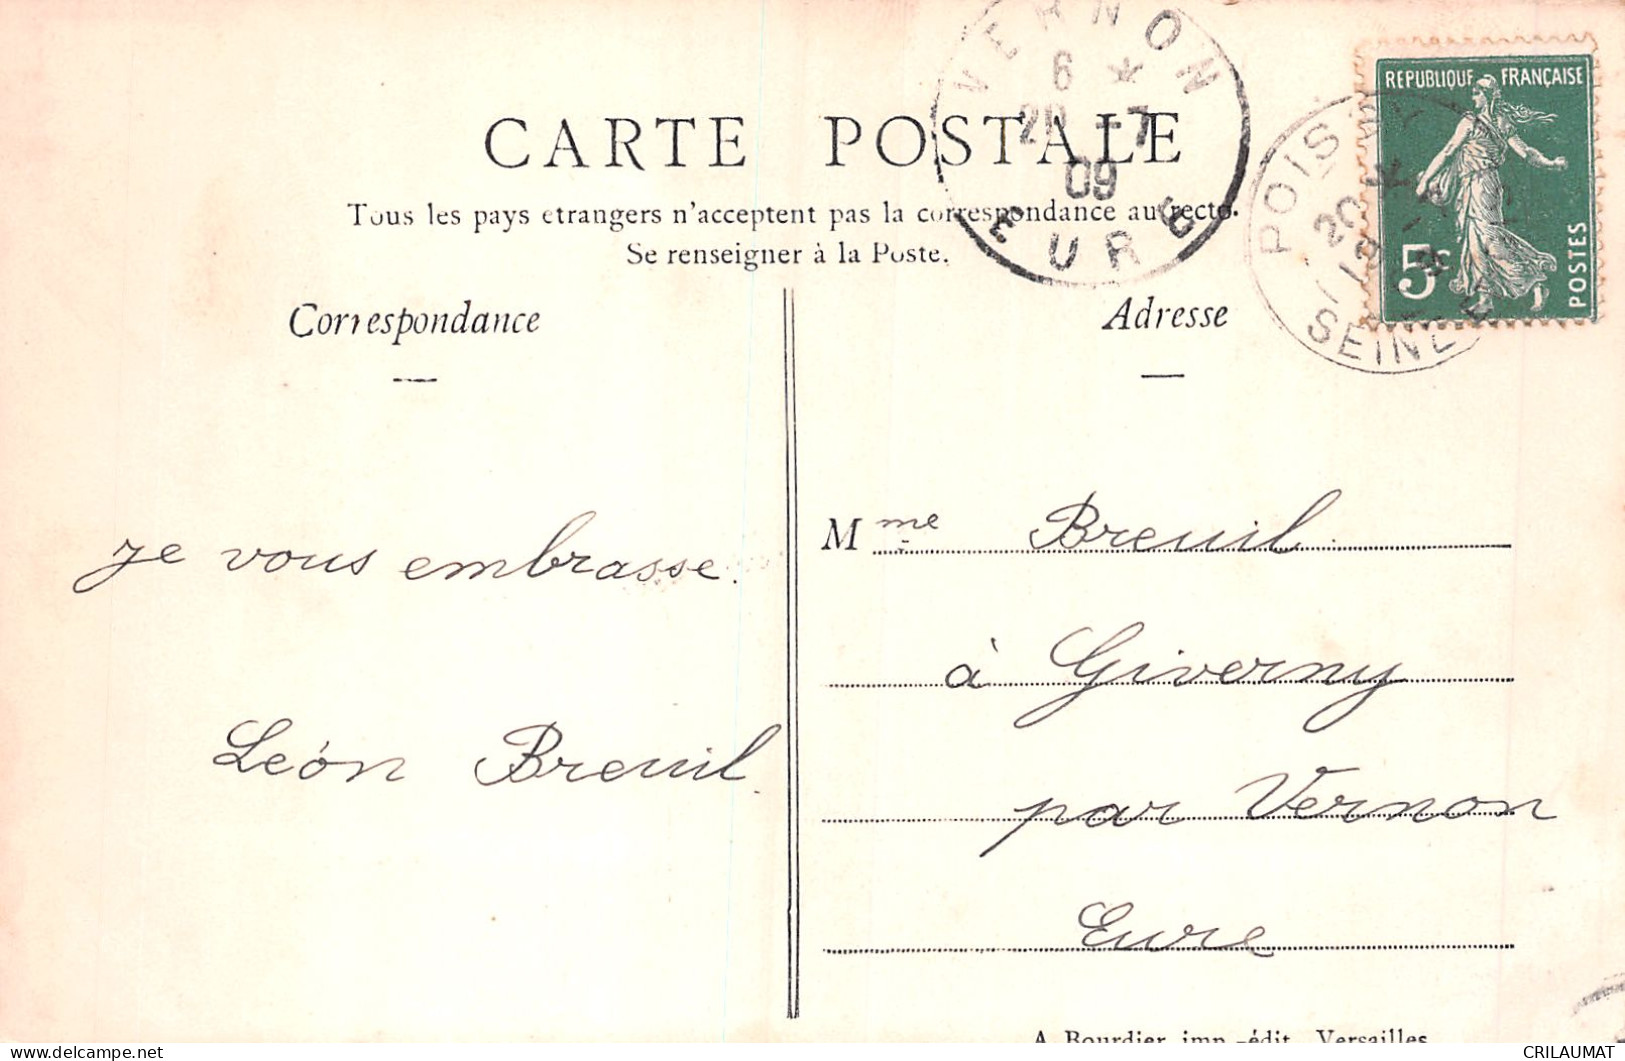 VERNON
6 *
20 -7
09
EURE
REPUBLIQUE FRANÇAISE
5c
POSTES
CARTE POSTALE
Tous les pays etrangers n'acceptent pas la correspondance au recto.
Se renseigner à la Poste.
Correspondance
Adresse
je vous embrasse.
Léon Breuil
Mme Breuil
à Giverny
par Vernon
Eure
A. Bourdier, imp.-édit. Versailles
CRILAUMAT